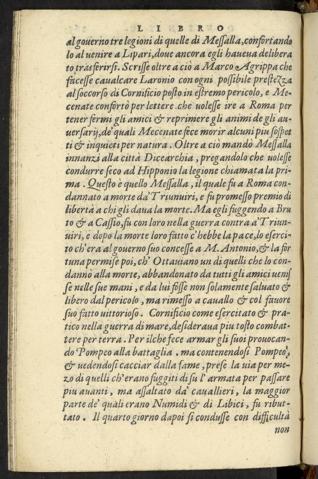 LIBRO
al governo tre legioni di quelle di Messalla, confortando
lo al uenire a Lipari, doue ancora egli haueua delibera
to trasferirsi. Scrisse oltre a ciò a Marco Agrippa che
facesse caualcare Laronio con ogni possibile prestezza
al soccorso di Cornificio posto in estremo pericolo, e Me-
cenate confortò per lettere che uolesse ire a Roma per
tener fermi gli amici & reprimere gli animi de gli au-
uersarij, de' quali Mecenate fece morir alcuni piu sospet
ti & inquieti per natura. Oltre a ciò mandò Messalla
innanzi alla città Dicearchia, pregandolo che uolesse
condurre seco ad Hipponio la legione chiamata la pri-
ma. Questo è quello Messalla, il quale fu a Roma con-
dannato a morte da' Triunuiri, e fu promesso premio di
libertà a chi gli daua la morte. Ma egli fuggendo a Bru
to & a Cassio, fu con loro nella guerra contra a' Triun-
uiri, e dopo la morte loro fatto c'hebbe la pace, lo eserci-
to ch'era al gouerno suo concesse a M. Antonio, & la for
tuna permise poi, ch' Ottauiano un di quelli che lo con-
dannò alla morte, abbandonato da tutti gli amici uenis
se nelle sue mani, e da lui fosse non solamente saluato &
libero dal pericolo, ma rimesso a cauallo & col fauore
suo fatto uittorioso. Cornificio come esercitato & pra-
tico nella guerra di mare, desideraua piu tosto combat-
tere per terra. Per ilche fece armar gli suoi prouocan-
do Pompeo alla battaglia. ma contenendosi Pompeo,
& uedendosi cacciar dalla fame, prese la uia per me-
zo di quelli ch'erano fuggiti di su l'armata per passare
piu auanti, ma assaltato da' cauallieri, la maggior
parte de' quali erano Numidi & di Libici, fu ribut-
tato. Il quarto giorno dapoi si condusse con difficultà
non